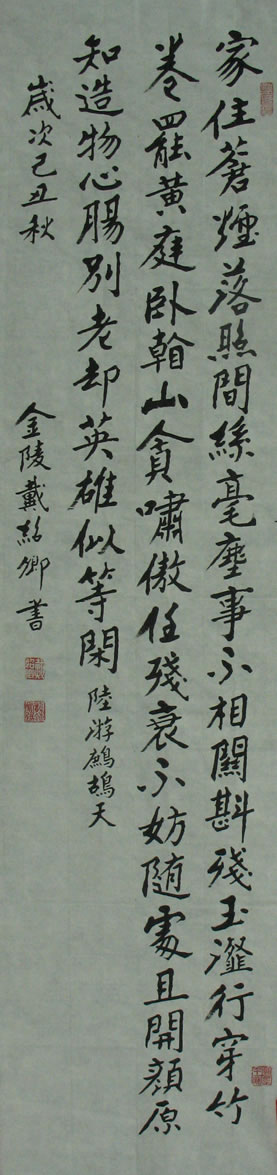 家住蒼煙落照間絲毫塵事不相關斟殘玉瀣行穿竹
卷罷黃庭卧看山貪嘯傲任殘衰不妨隨處且開顏原
知造物心腸別老却英雄似等閑
陸游鷓鴣天
歲次己丑秋
金陵戴紹卿書